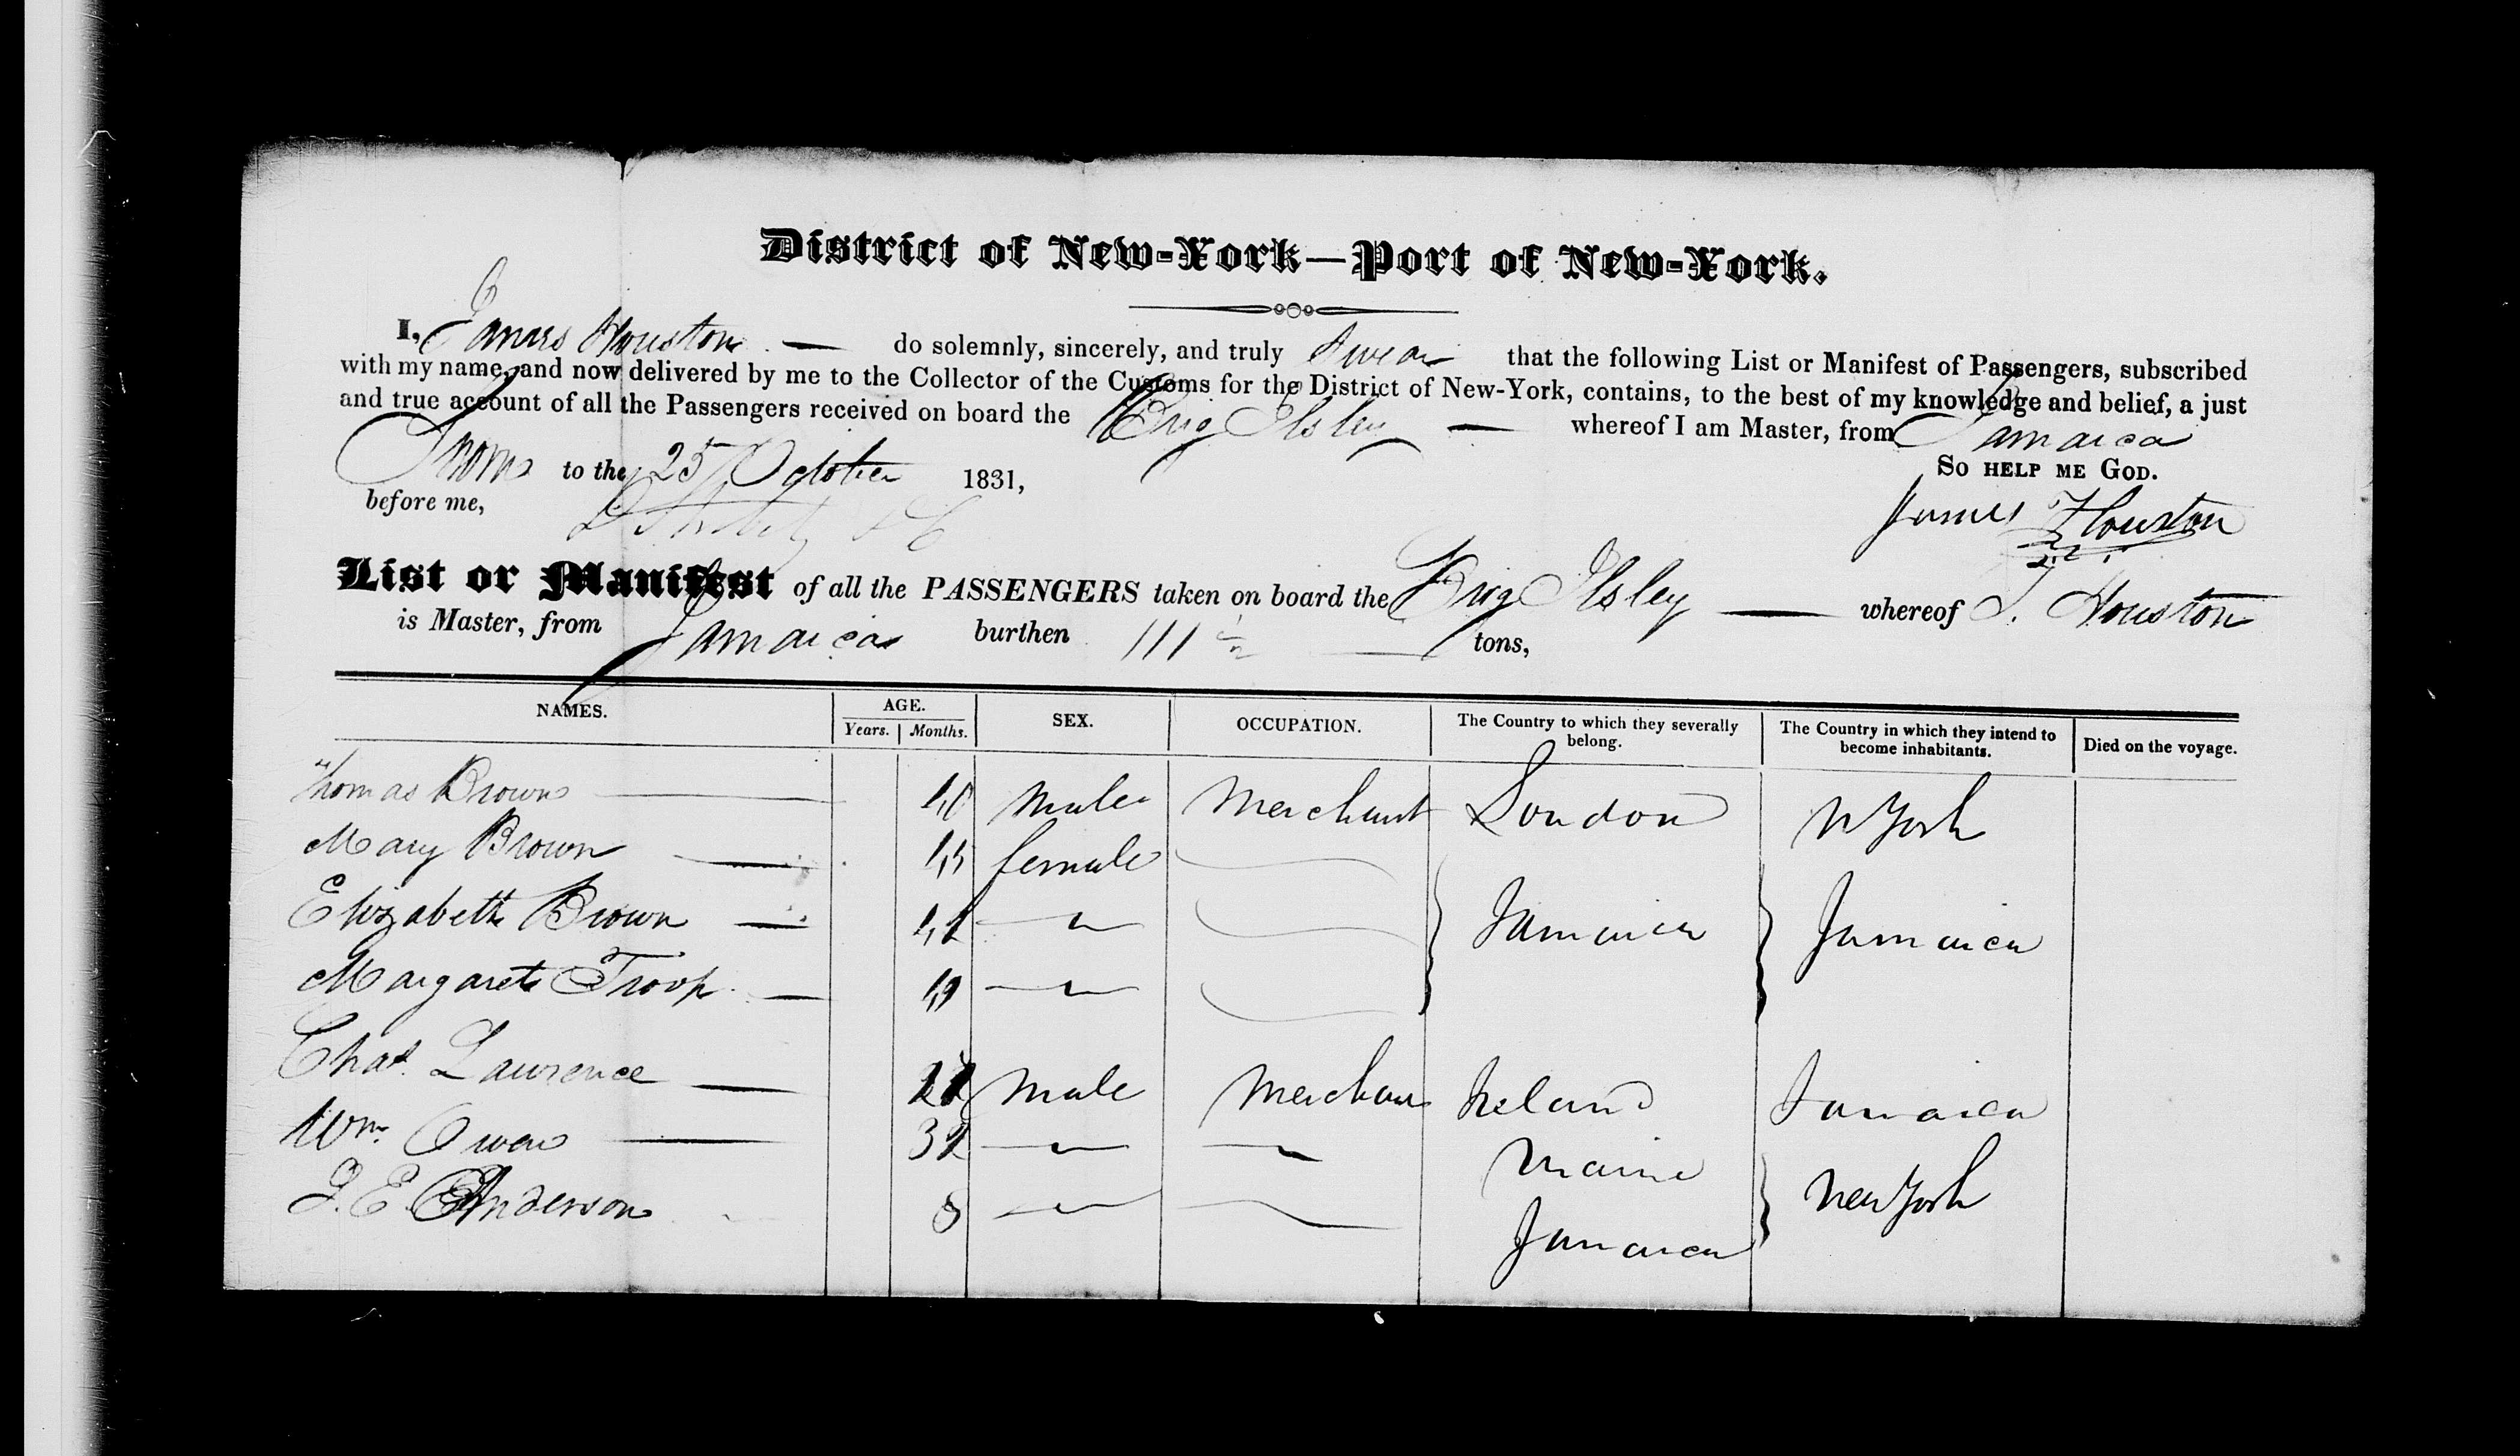 District of New-York—Port of New-York.
I, James Houston — do solemnly, sincerely, and truly swear that the following List or Manifest of Passengers, subscribed
with my name, and now delivered by me to the Collector of the Customs for the District of New-York, contains, to the best of my knowledge and belief, a just
and true account of all the Passengers received on board the Brig Ilsley — whereof I am Master, from Jamaica
Sworn to the 25 October 1831,
So HELP ME GOD.
before me,
James Houston
List or Manifest of all the PASSENGERS taken on board the Brig Ilsley — whereof J. Houston
is Master, from Jamaica burthen 111 tons,
NAMES. AGE. SEX. OCCUPATION. The Country to which they severally belong. The Country in which they intend to become inhabitants. Died on the voyage.
Years. Months.
Thomas Brown — male Merchant London N York
Mary Brown — female
Elizabeth Brown — Jamaica Jamaica
Margaret Troop —
Chas. Lawrence — male Merchan Ireland Jamaica
Wm. Owen — 32 Maine
J. E. Anderson 8 New York
Jamaica